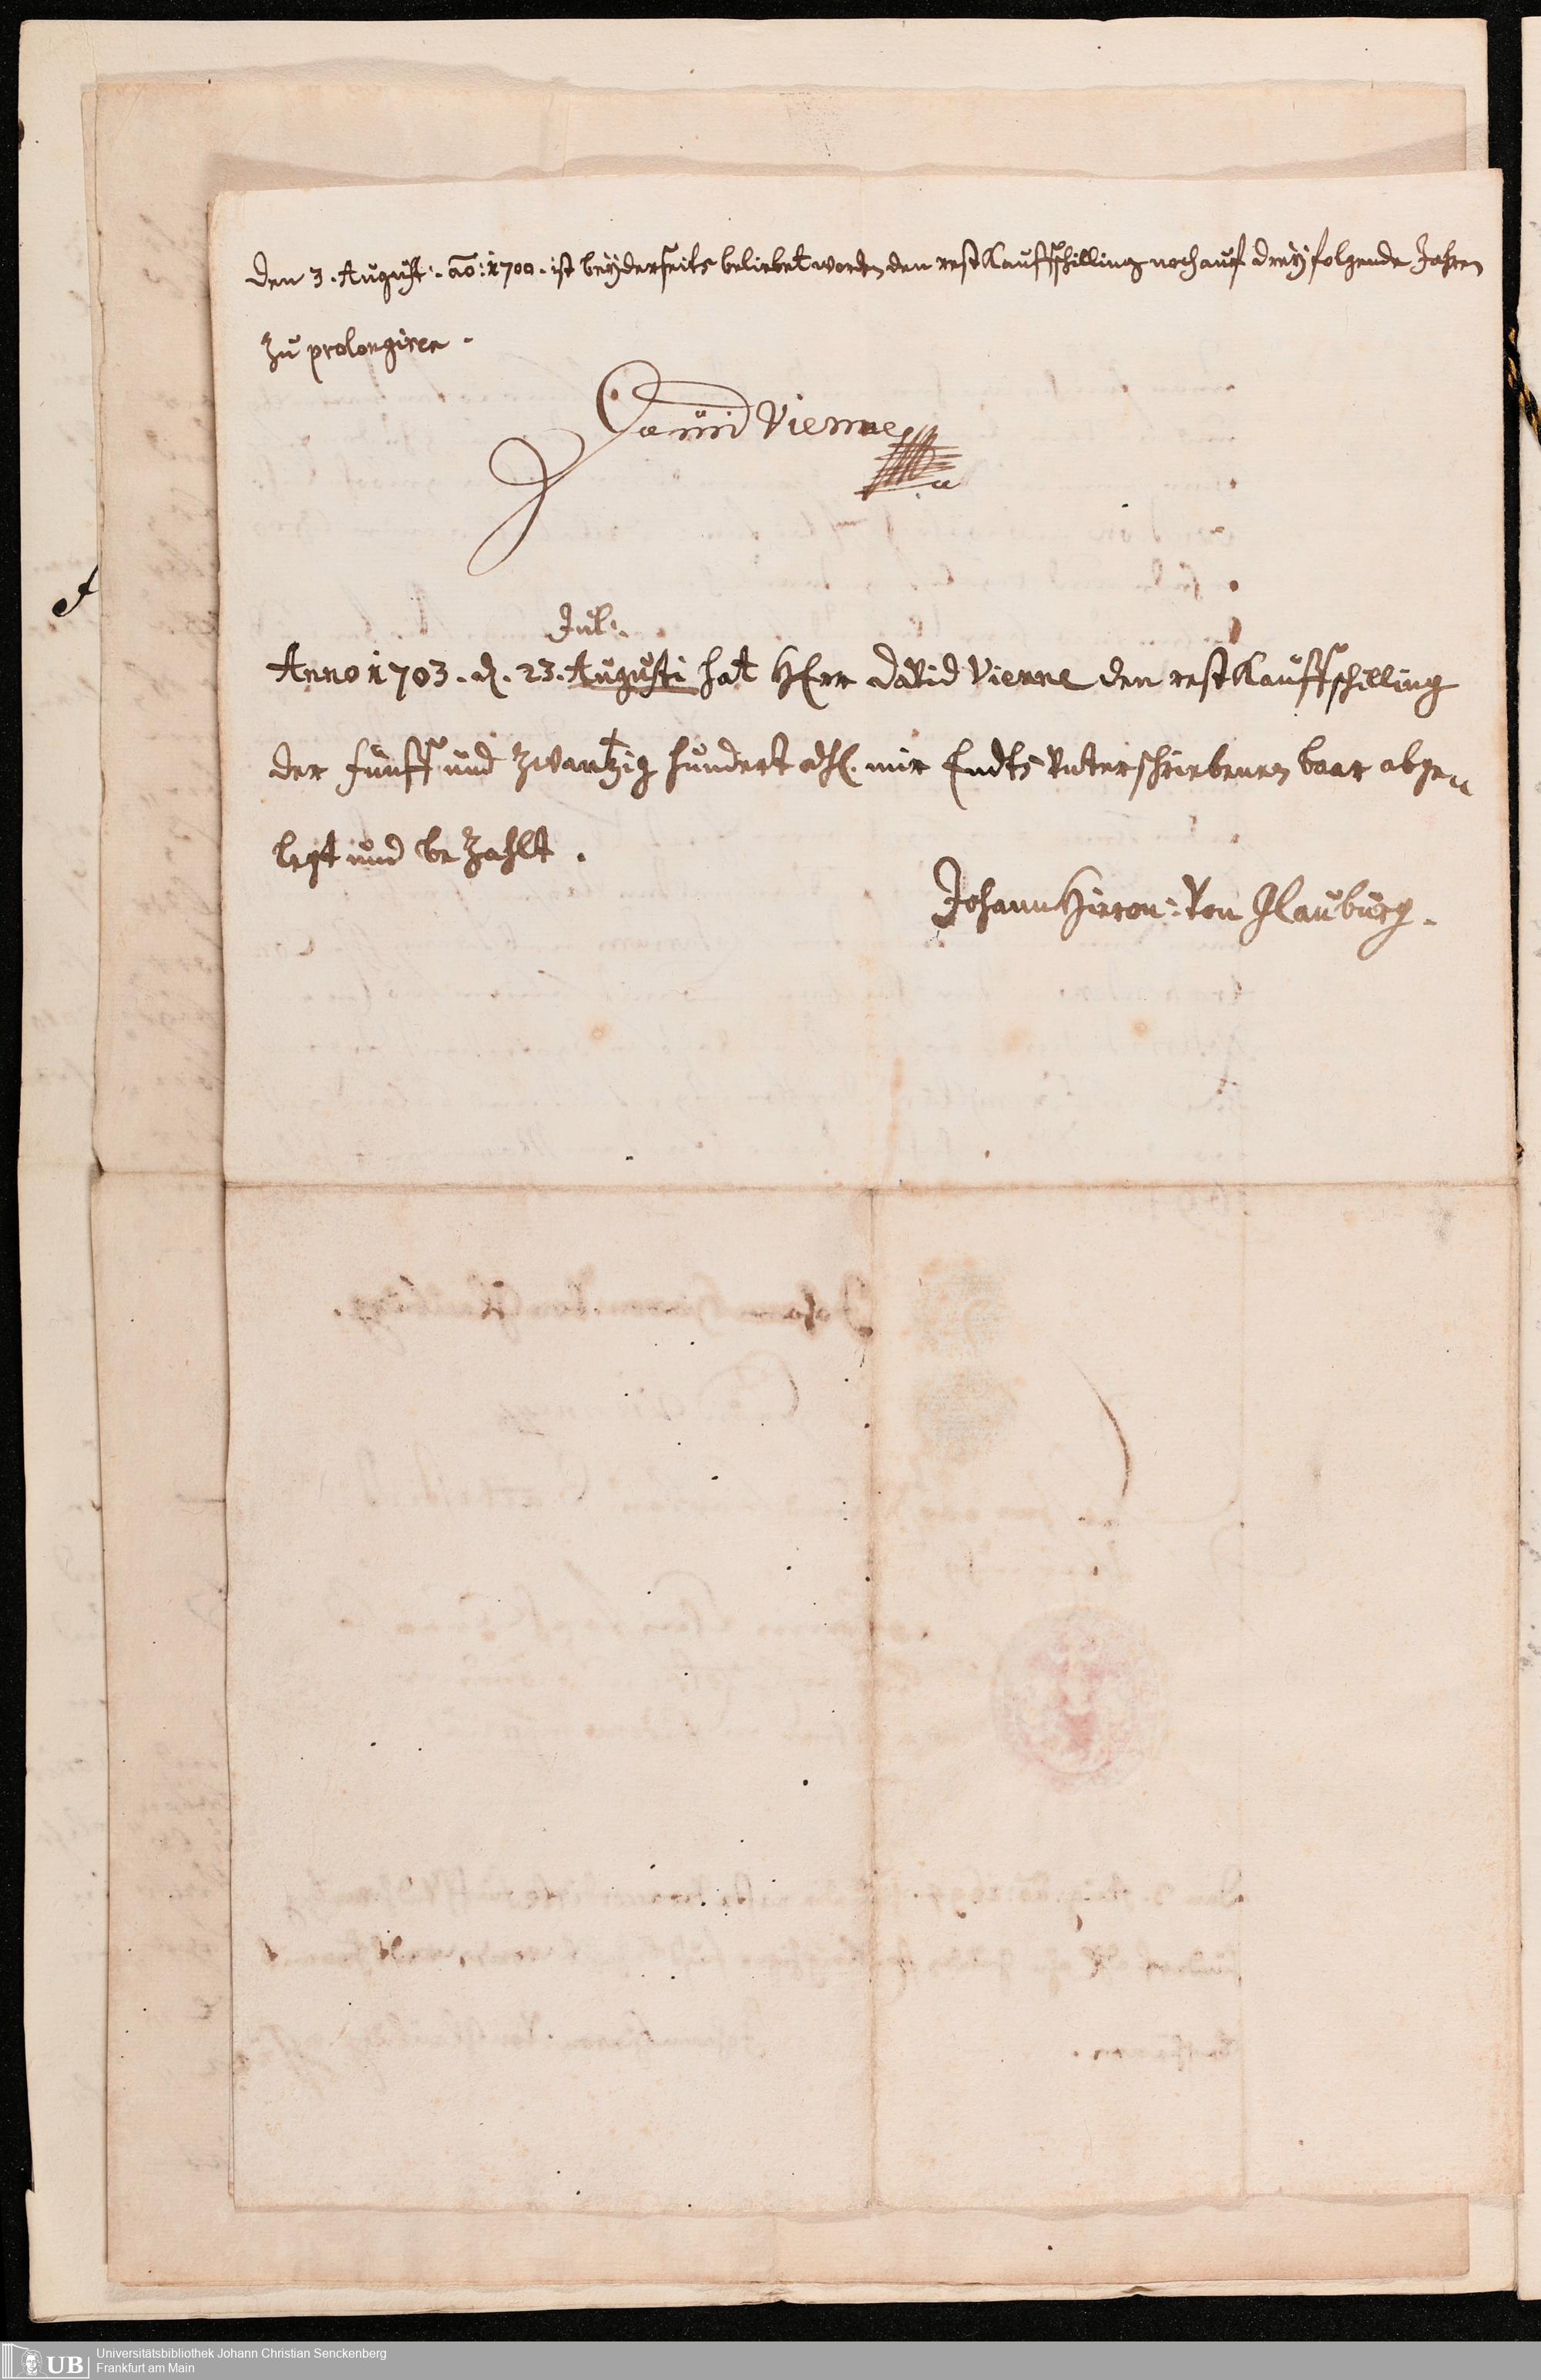 den 3. August: aō: 1700. ist beÿderseits beliebet worden den rest Kauffschilling noch auf dreÿ folgende Jahren
zu prolongiren.
David Vienne
Jul:
Anno 1703. d. 23. Augusti hat HErr David Vienne den rest Kauffschilling
der fünff und zwantzig hundert rthl. mir Endts Unterschriebenen baar abge„
legt und bezahlt.
Johann Hieron: Von Glauburg.
UB
Universitätsbibliothek Johann Christian Senckenberg
Frankfurt am Main